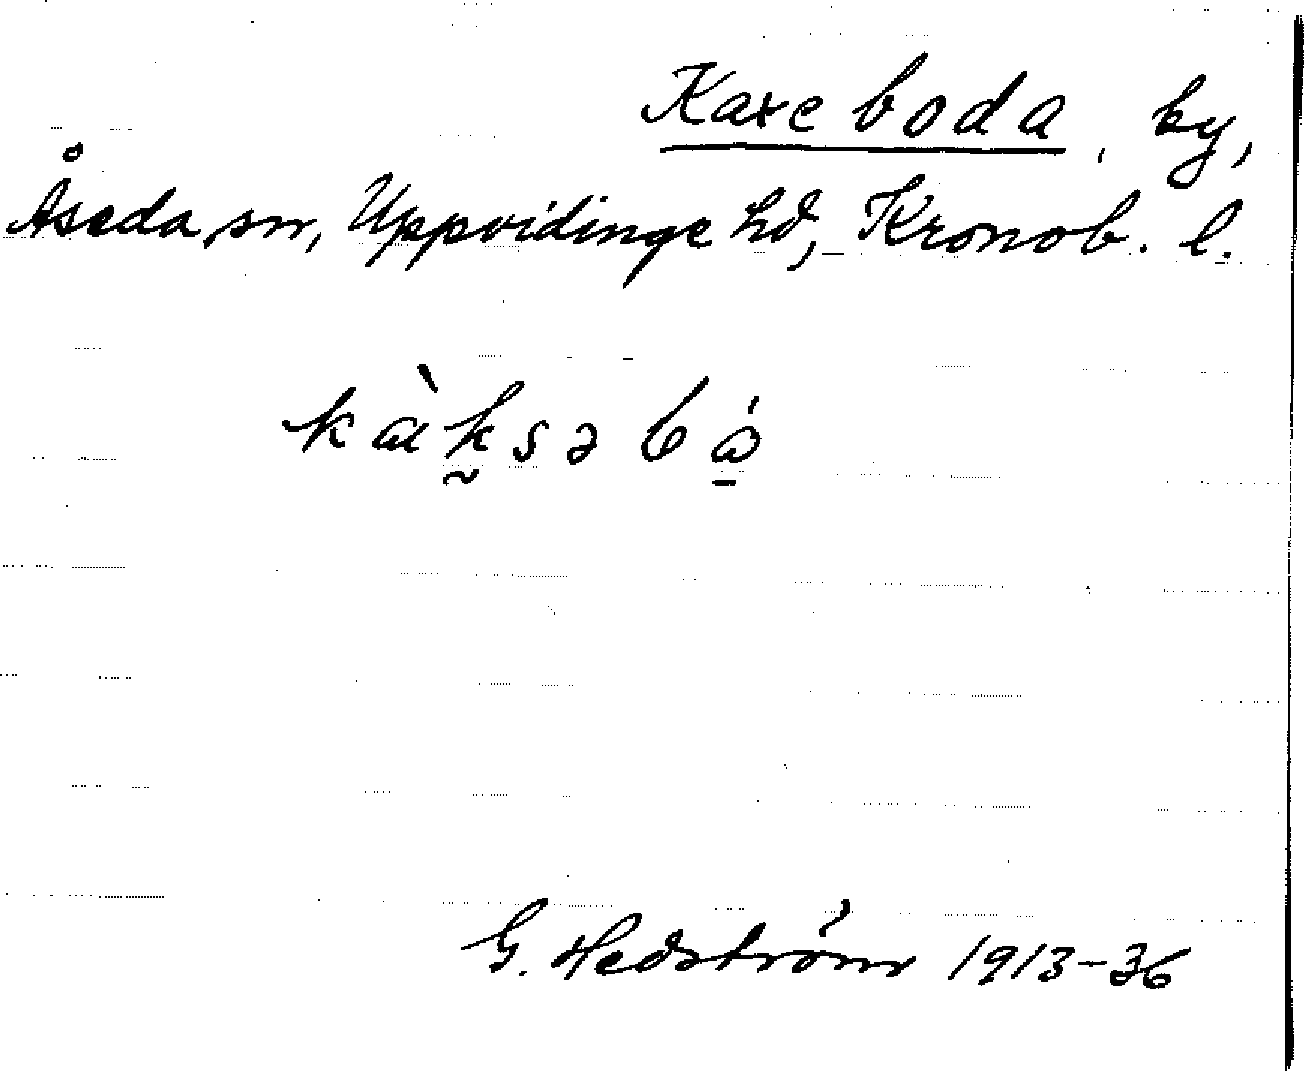 Kaxeboda, by,
Åseda sn, Uppvidinge hd, Kronob. l.
kàk̰səbǻ̱
G. Hedström 1913-36